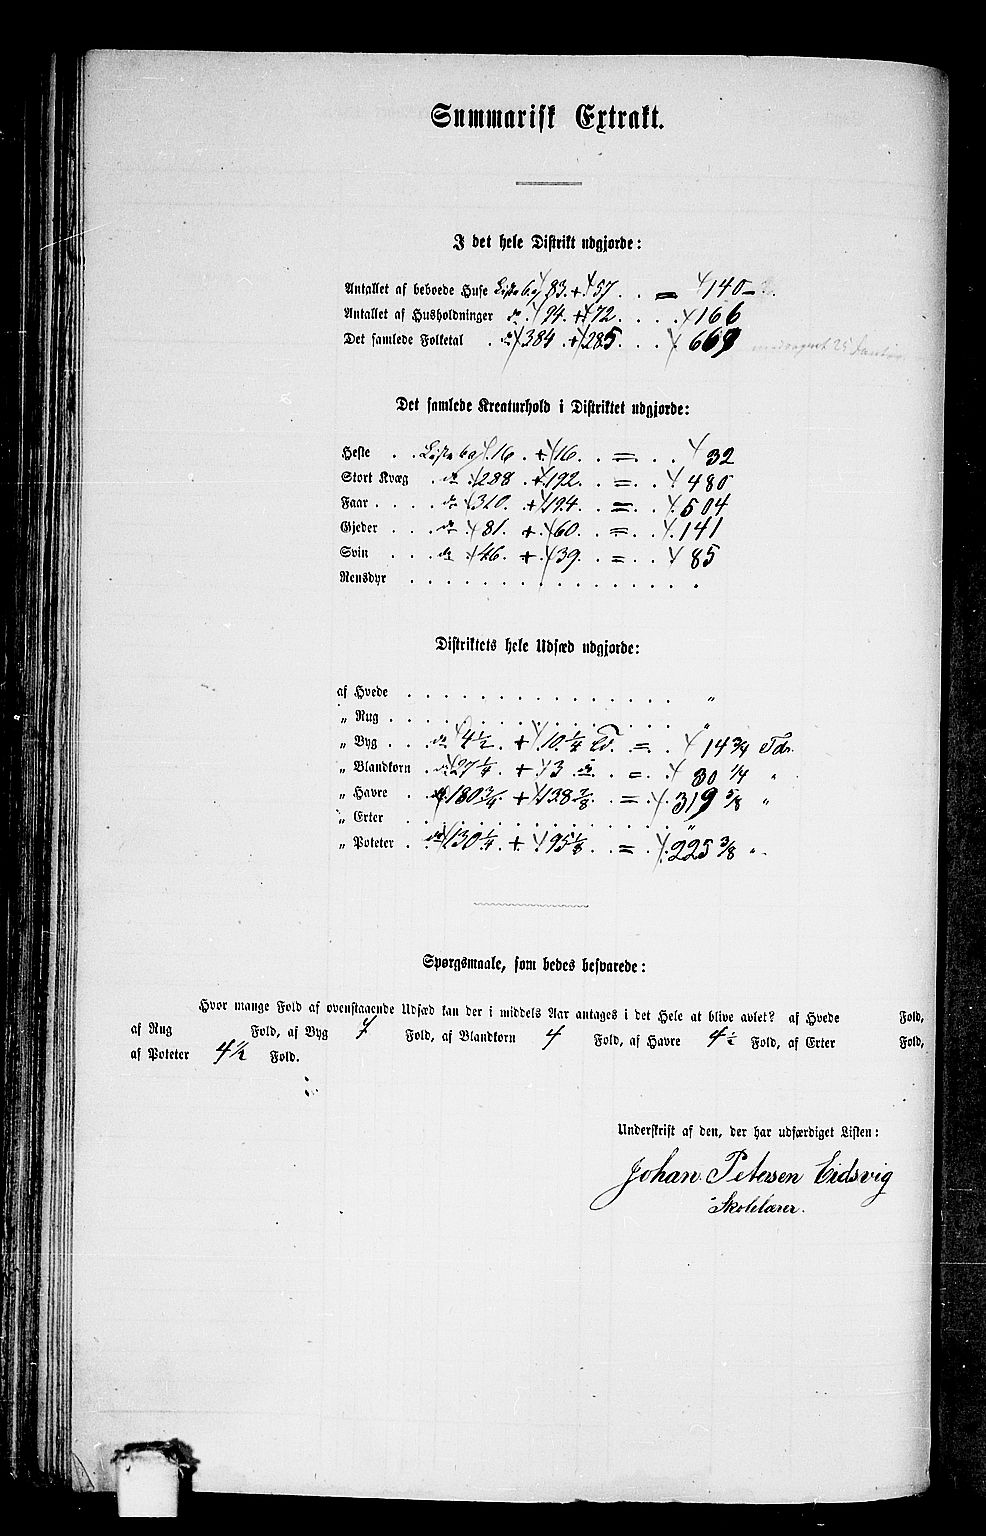 Summarisk Extrakt.
I det hele Distrikt udgjorde:
Antallet af beboede Huse Liste 6 og 83. + 57 . . = 140 -
Antallet af Husholdninger do . 94. + 72 . . . . 166
Det samlede Folketal . do 384 . + 285 . . . 669 25
Det samlede Kreaturhold i Distriktet udgjorde:
Heste . . Liste 6 og . 16 . + 16 . . = . . 32
Stort Kvæg . do . 288 . + 192. . = . . 480
Faar . . . . do . 310. . + 194 . . = . . 504
Gjeder . . . do . 81. + 60 . . = . . 141
Svin . . . do . 46. + . 39. . = . . 85
Rensdyr . . . . . . . . . . . . . . . "
Distriktets hele Udsæd udgjorde:
af Hvede . . . . . . . . . . . . . . . "
" Rug . . . . . . . . . . . . . . . . "
" Byg . . . do 4 1/2 . + 10. 1/4 Td. . = . 14 3/4 Tdr.
" Blandkorn . do 27 1/4 + 3 do . . = . . 30 1/4 "
" Havre . . do 180 3/4 + 138 7/8 . . = . . 319 5/8 "
" Erter . . . . . . . . . . . . . . . "
" Poteter . . do 130 1/4 . + . 95 1/8 . . = . . 225 3/8 " .
Spørgsmaale, som bedes besvarede:
Hvor mange Fold af ovenstaaende Udsæd kan der i middels Aar antages i det Hele at blive avlet? af Hvede Fold,
af Rug Fold, af Byg 7 Fold, af Blandkorn 4 Fold, af Havre 4 1/2 Fold, af Erter Fold,
af Poteter 4 1/2 Fold.
Underskrift af den, der har udfærdiget Listen:
Johan Petersen Eidsvig
Skolelærer.